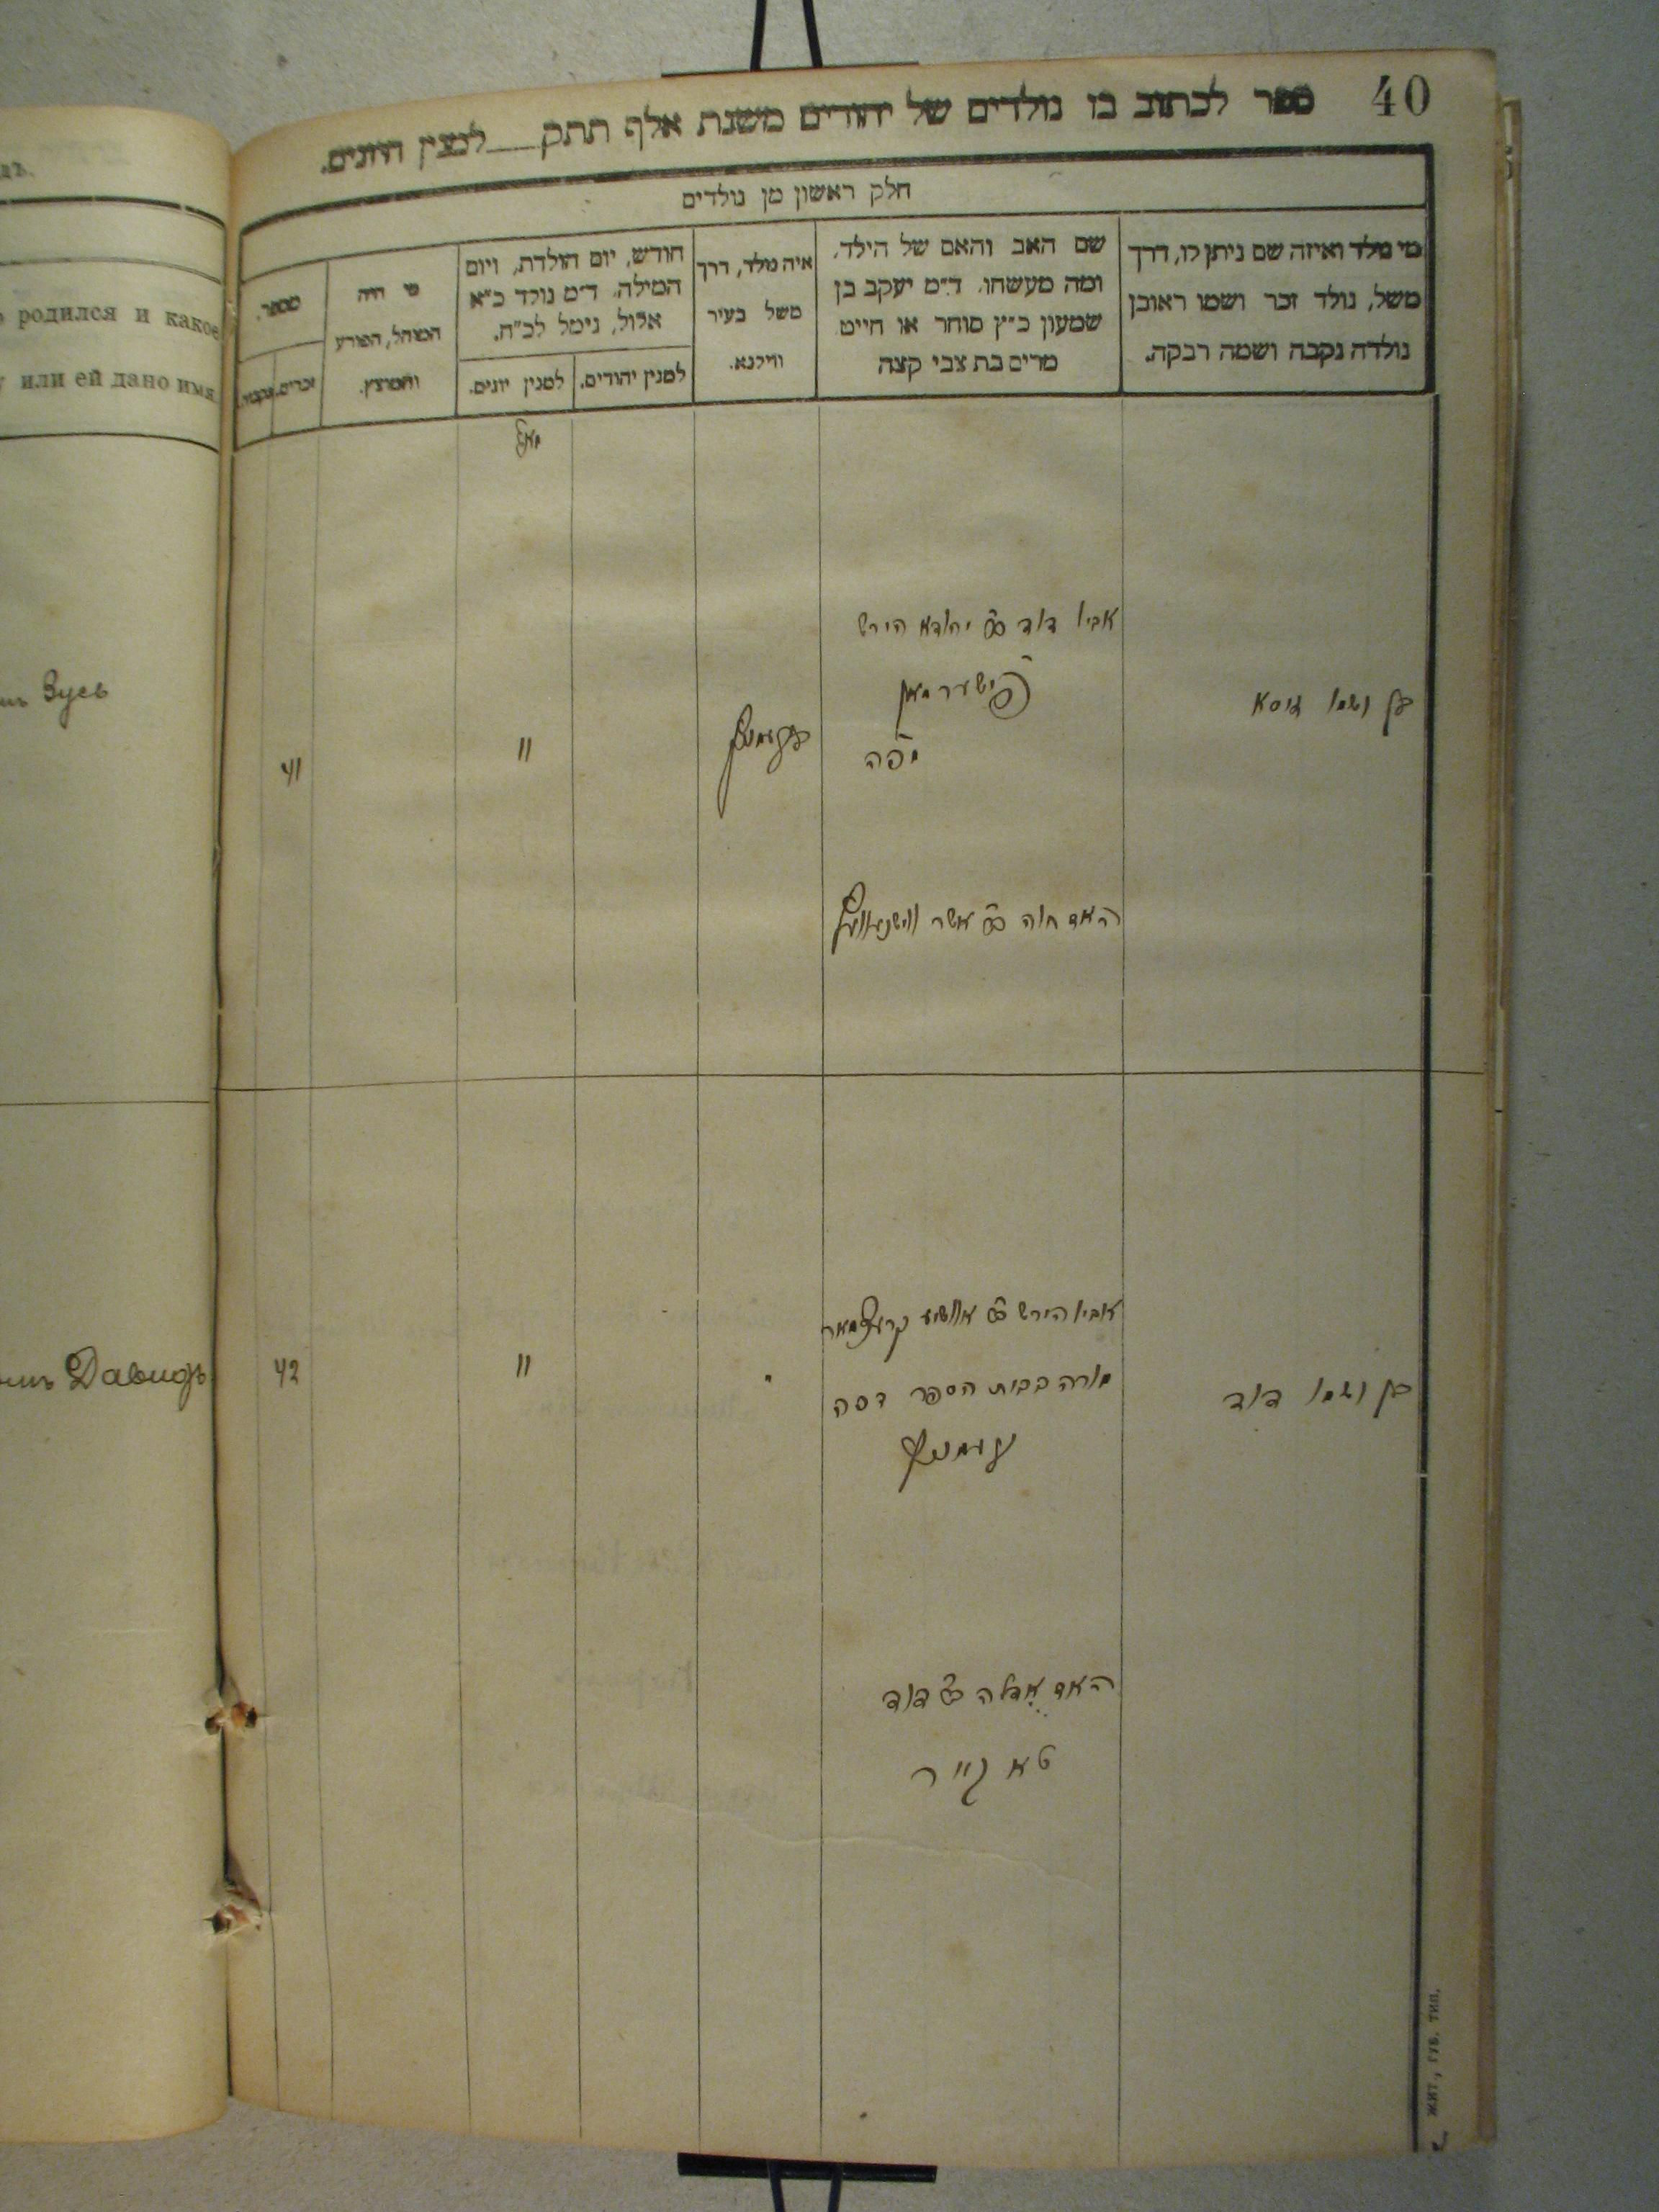 40
ספר לכתוב בו נולדים של יהודים משנת אלף תתק___למנין היונים.
חלק ראשון מן נולדים
מי מלד ואיזה שם ניתן לו, דרך
משל, נולד זכר ושמו ראובן
נולדה נקבה ושמה רבקה.
שם האב והאם של הילד,
ומה מעשהו, ד״מ יעקב בן
שמעון כ״ץ סוחר או חייט
מרים בת צבי קצה
איה מלד, דרך
משל בעיר
ווילנא.
חודש, יום הולדת, ויום
המילה, ד״מ נולד כ״א
אלול, נימל לכ״ח.
למנין יהודים.
למנין יונים.
מי היה
המוהל, הפורע
והמוצץ.
מספר.
זכרים.
נקבות.
בן ושמו זוסא
אביו דוד בר יהודא הירש
פישערמאן
יפה
האם חוה בר אשר
"
41
בן ושמו דוד
אביו הירש בר
מורה בבית הספר דפה
האם אדלה בר דוד
"
42
дъ.
о родился и какое
у или ей дано имя.
Зусь
Давидъ
ЖИТ, ГУБ. ТИП.